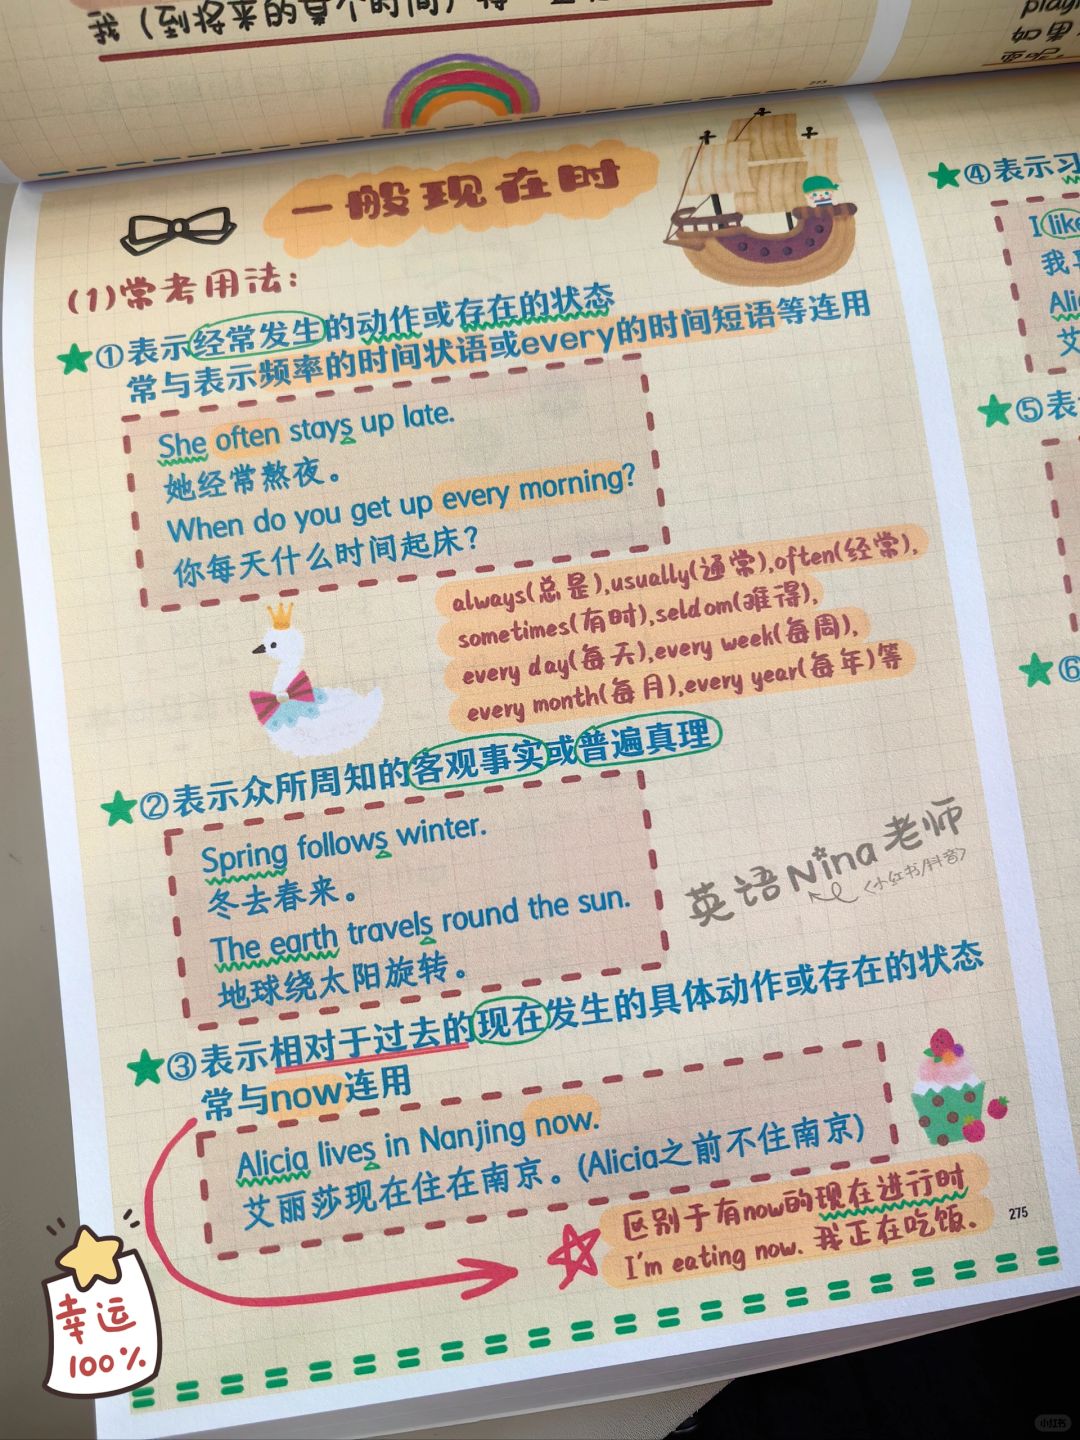 我（到将来的某个时间）
play
如果
要呢
273
一般现在时
(1)常考用法:
①表示经常发生的动作或存在的状态
常与表示频率的时间状语或every的时间短语等连用
She often stays up late.
她经常熬夜。
When do you get up every morning?
你每天什么时间起床?
always(总是),usually(通常),often(经常),
sometimes(有时),seldom(难得),
every day(每天),every week(每周),
every month(每月),every year(每年)等
②表示众所周知的客观事实或普遍真理
Spring follows winter.
冬去春来。
The earth travels round the sun.
地球绕太阳旋转。
英语Nina老师
<小红书/抖音>
③表示相对于过去的现在发生的具体动作或存在的状态
常与now连用
Alicia lives in Nanjing now.
艾丽莎现在住在南京。(Alicia之前不住南京)
区别于有now的现在进行时
I'm eating now. 我正在吃饭.
275
幸运
100%
④表示习
I like
我
Ali
艾
⑤表
⑥
小红书